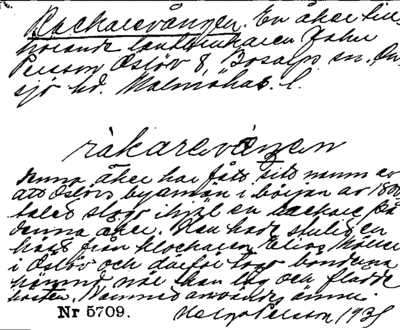 Rackarevången. En åker till-
hörande lantbrukaren John
Persson Öslöv 8, Bosarps sn. On-
sjö hd. Malmöhus l.
råkarevången
Denna åker har fått sitt namn av
att Öslövs byamän i början av 1800
talet slogo ihjäl en rackare på
denna åker. Han hade stulit en
häst från klockaren
i Öslöv och därför togo bönderna
hämnd när han låg och flådde
hästen. Namnet användes ännu.
Nr 5709. Helge Persson 1935